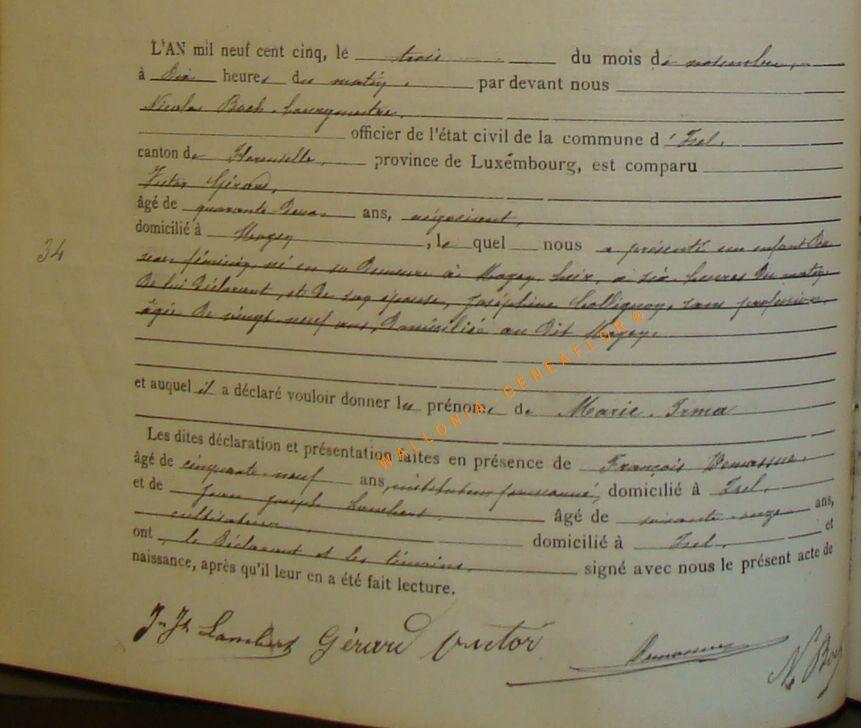 L'AN mil neuf cent cinq, le trois du mois de novembre,
à Dix heures du matin, par devant nous
Nicolas Boch, bourgmestre,
officier de l'état civil de la commune d'Izel,
canton de Florenville, province de Luxembourg, est comparu
Victor Gérard,
âgé de quarante-deux ans, négociant,
domicilié à Moyen, lequel nous a présenté un enfant De
sexe féminin, né en sa Demeure à Moyen, hier, à six heures Du matin
De lui Déclarant, et De son épouse, Joséphine Collignon, sans profession,
âgée De vingt-neuf ans, Domiciliée au Dit Moyen.
34
et auquel il a déclaré vouloir donner les prénoms de Marie, Irma
Les dites déclaration et présentation faites en présence de François
âgé de cinquante-neuf ans, instituteur pensionné, domicilié à Izel,
et de Jean Joseph Lambert âgé de soixante-onze ans,
cultivateur domicilié à Izel, et
ont, le Déclarant et les témoins, signé avec nous le présent acte de
naissance, après qu'il leur en a été fait lecture.
Jn Jh Lambert Gérard Victor N. Boch
WALLONIA-GENEAFLOR®